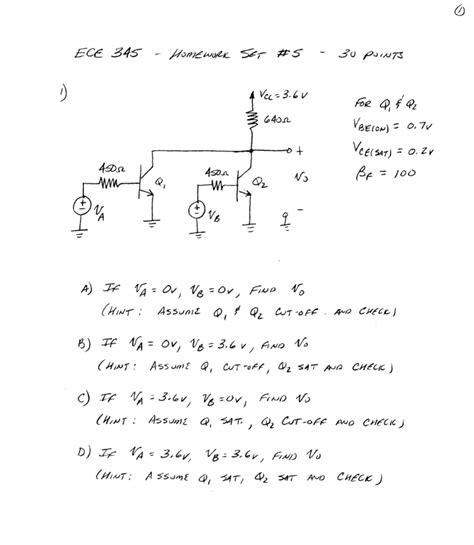 ①
ECE 345 - HOMEWORK SET #5 - 30 POINTS
1)
VCC = 3.6V
640Ω
FOR Q1 & Q2
VBE(ON) = 0.7V
VCE(SAT) = 0.2V
βF = 100
450Ω
Q1
450Ω
Q2
+
Vo
-
+
-
VA
+
-
VB
A) IF VA = 0V, VB = 0V, FIND Vo
(HINT: ASSUME Q1 & Q2 CUT-OFF. AND CHECK)
B) IF VA = 0V, VB = 3.6V, FIND Vo
(HINT: ASSUME Q1 CUT-OFF, Q2 SAT AND CHECK)
C) IF VA = 3.6V, VB = 0V, FIND Vo
(HINT: ASSUME Q1 SAT., Q2 CUT-OFF AND CHECK)
D) IF VA = 3.6V, VB = 3.6V, FIND Vo
(HINT: ASSUME Q1 SAT, Q2 SAT AND CHECK)